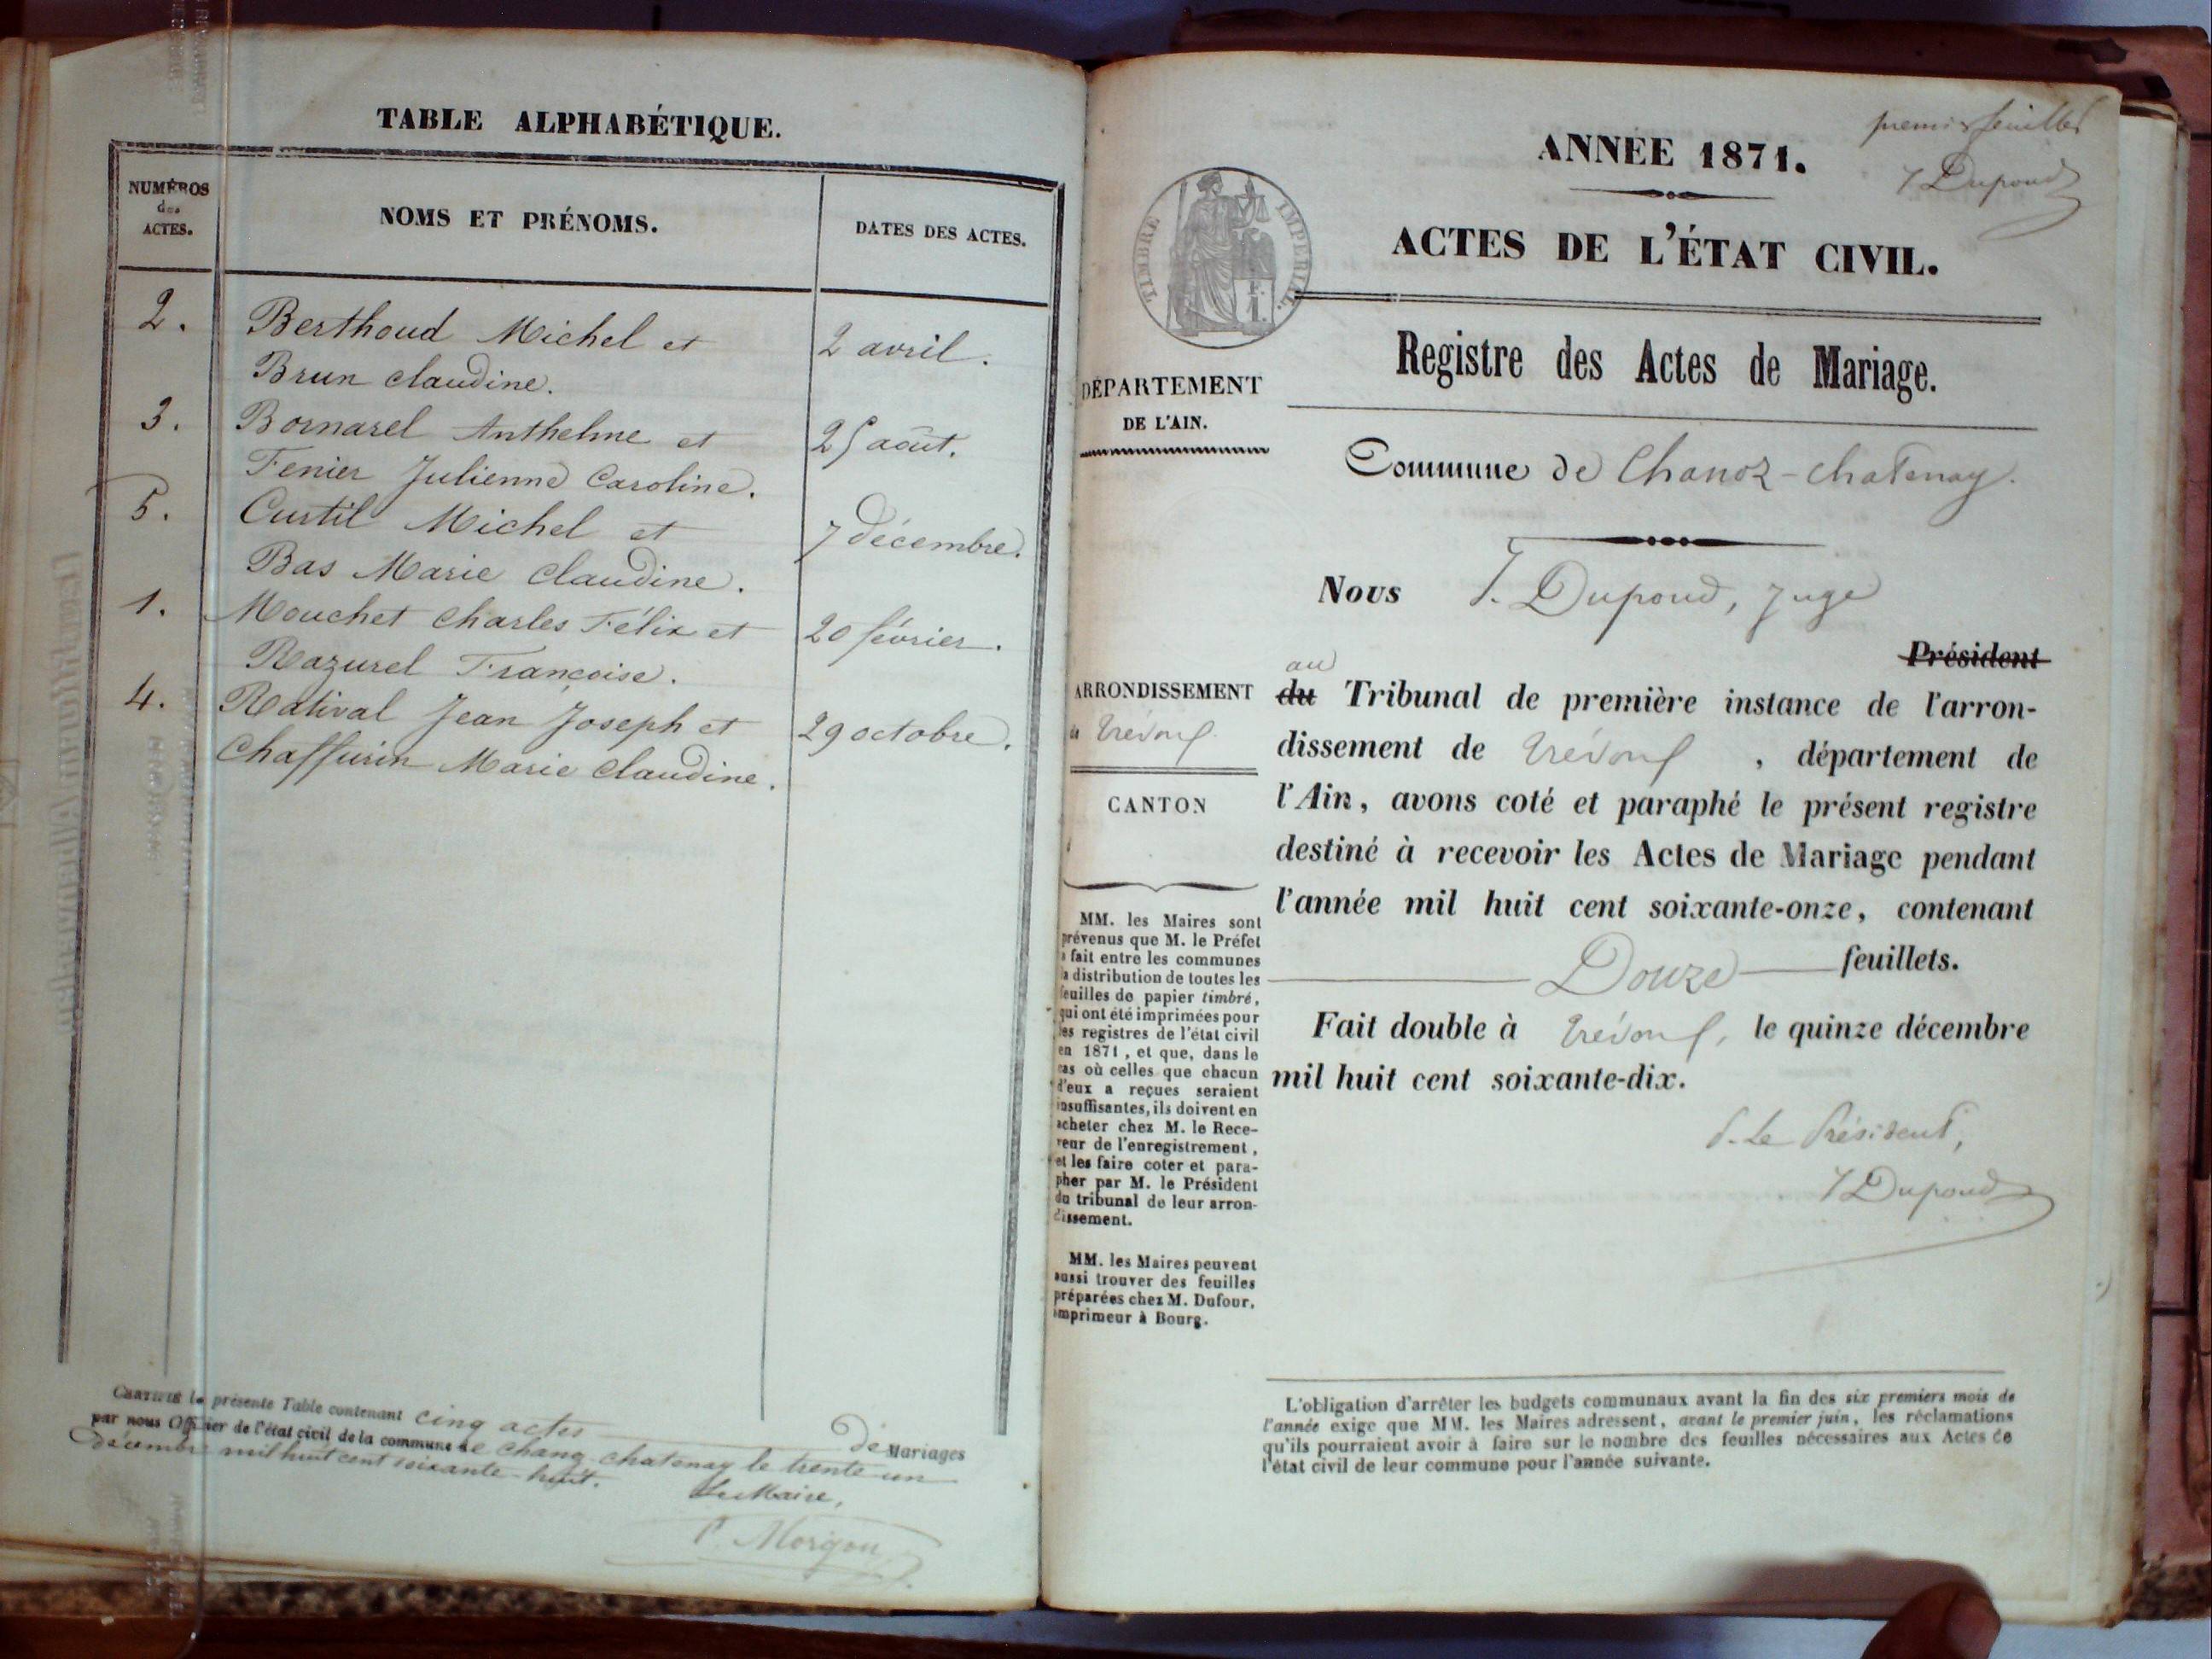 TABLE ALPHABÉTIQUE.
NUMÉROS
des
ACTES.
NOMS ET PRÉNOMS.
DATES DES ACTES.
2. Berthoud Michel et 2 avril.
Brun Claudine.
3. Bornarel Anthelme et 25 août.
Fenier Julienne Caroline.
5. Curtil Michel et 7 décembre.
Bas Marie Claudine.
1. Mouchet Charles Félix et 20 février.
Razurel Françoise.
4. Ratival Jean Joseph et 29 octobre.
Chaffurin Marie Claudine.
CERTIFIÉ la présente Table contenant cinq actes de Mariages
par nous Officier de l'état civil de la commune de Chanoz-chatenay le trente-un
décembre mil huit cent soixante-huit.
Le Maire,
C. Morgon
premier feuillet
J Dupond
ANNÉE 1871.
ACTES DE L'ÉTAT CIVIL.
TIMBRE IMPERIAL.
Registre des Actes de Mariage.
DÉPARTEMENT
DE L'AIN.
Commune de Chanoz-chatenay.
Nous J. Dupond, Juge
Président
au
ARRONDISSEMENT
de Trévoux
CANTON
du Tribunal de première instance de l'arron-
dissement de Trévoux, département de
l'Ain, avons coté et paraphé le présent registre
destiné à recevoir les Actes de Mariage pendant
l'année mil huit cent soixante-onze, contenant
Douze feuillets.
Fait double à Trévoux, le quinze décembre
mil huit cent soixante-dix.
P. Le Président,
J Dupond
MM. les Maires sont
prévenus que M. le Préfet
a fait entre les communes
la distribution de toutes les
feuilles de papier timbré,
qui ont été imprimées pour
les registres de l'état civil
en 1871, et que, dans le
cas où celles que chacun
d'eux a reçues seraient
insuffisantes, ils doivent en
acheter chez M. le Rece-
veur de l'enregistrement,
et les faire coter et para-
pher par M. le Président
du tribunal de leur arron-
dissement.
MM. les Maires peuvent
aussi trouver des feuilles
préparées chez M. Dufour,
imprimeur à Bourg.
L'obligation d'arrêter les budgets communaux avant la fin des six premiers mois de
l'année exige que MM. les Maires adressent, avant le premier juin, les réclamations
qu'ils pourraient avoir à faire sur le nombre des feuilles nécessaires aux Actes de
l'état civil de leur commune pour l'année suivante.